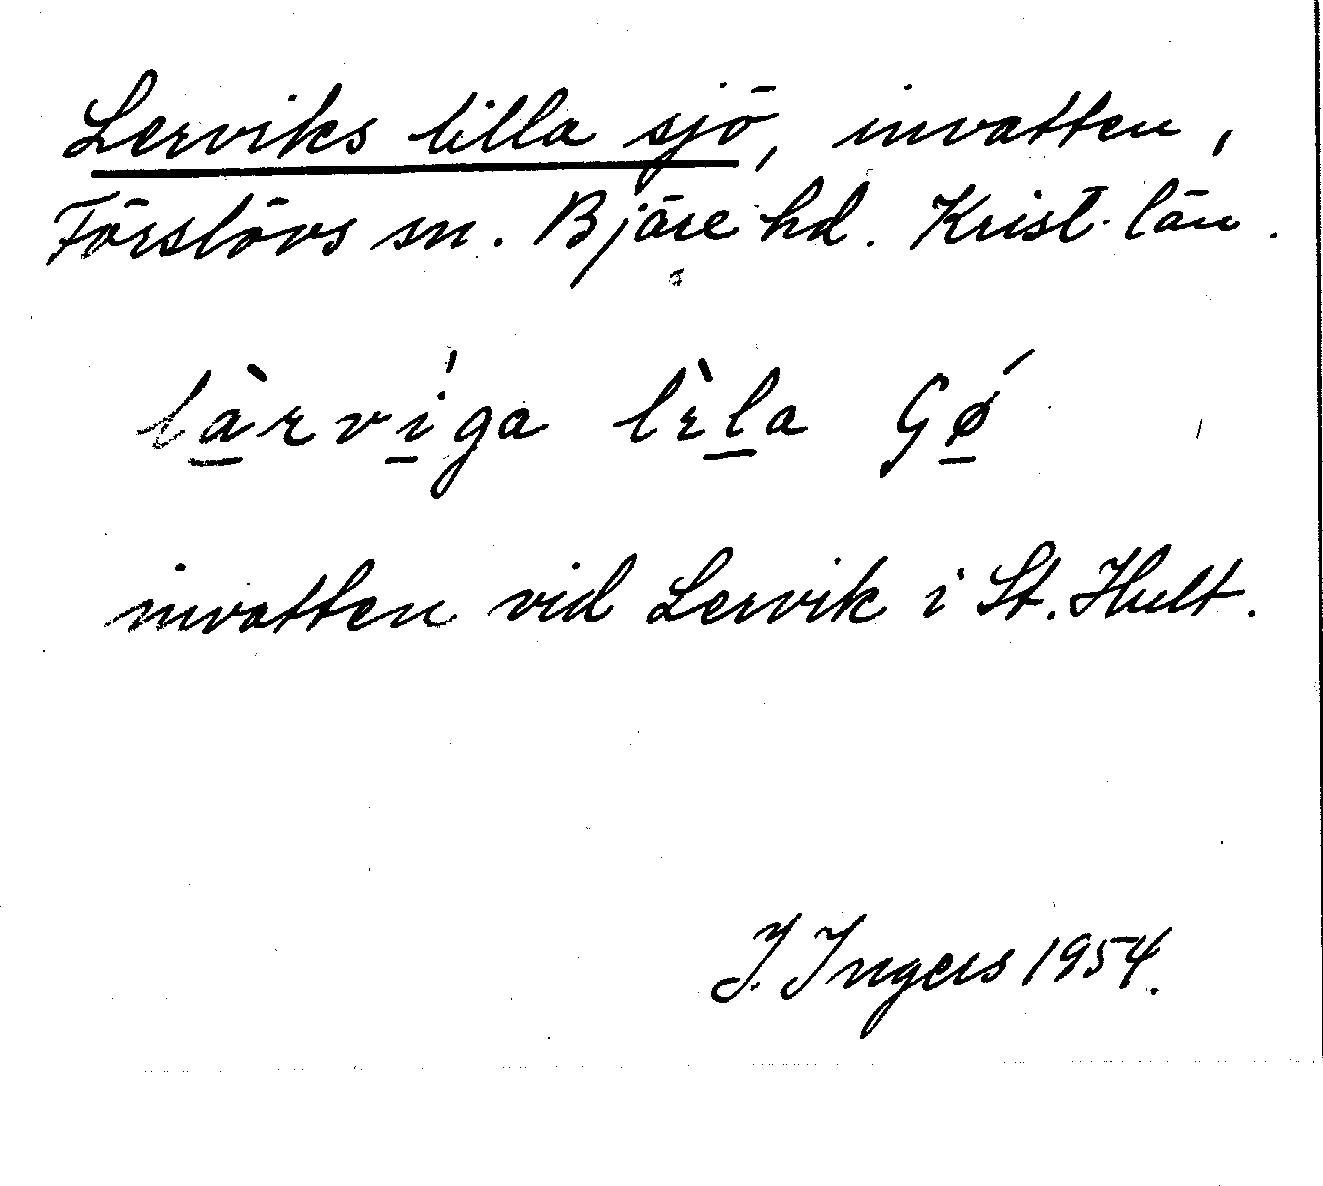 Lerviks lilla sjö, invatten,
Förslövs sn. Bjäre hd. Krist. län.
làrviga lìla Gǿ
invatten vid Lervik i St. Hult.
I. Ingers 1954.